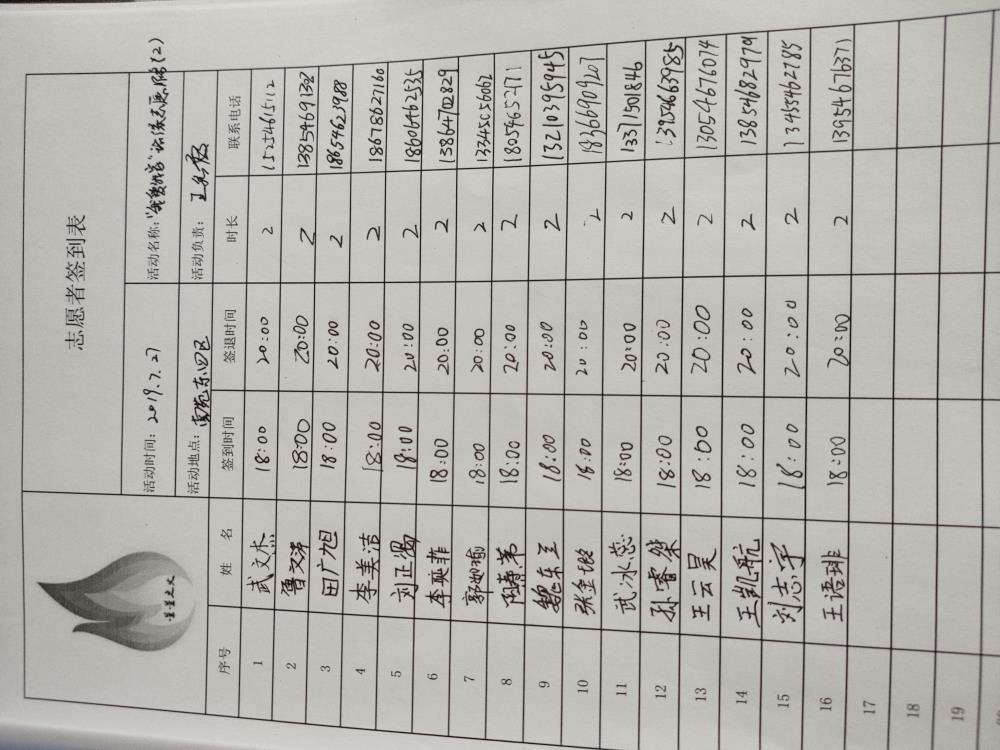 志愿者签到表
星星之火
活动时间：2019.7.27
活动地点：南苑东四区
活动负责：
序号 姓 名 签到时间 签退时间 时长 联系电话
1 武文杰 18:00 20:00 2 15254615112
2 18:00 20:00 2 13854691132
3 田广旭 18:00 20:00 2 18654623988
4 李美洁 18:00 20:00 2 18678627160
5 刘正阳 18:00 20:00 2 18606462535
6 李奕菲 18:00 20:00 2 13864702829
7 郭如瑜 18:00 20:00 2 13345056062
8 18:00 20:00 2 18054652771
9 魏东呈 18:00 20:00 2 13210395945
10 张金铭 18:00 20:00 2 18366909207
11 武冰蕊 18:00 20:00 2 13311501846
12 孙睿燊 18:00 20:00 2 13954663985
13 王云昊 18:00 20:00 2 13054676074
14 王凯航 18:00 20:00 2 13854682979
15 刘志宇 18:00 20:00 2 13455462785
16 王语琲 18:00 20:00 2 13954676371
17
18
19